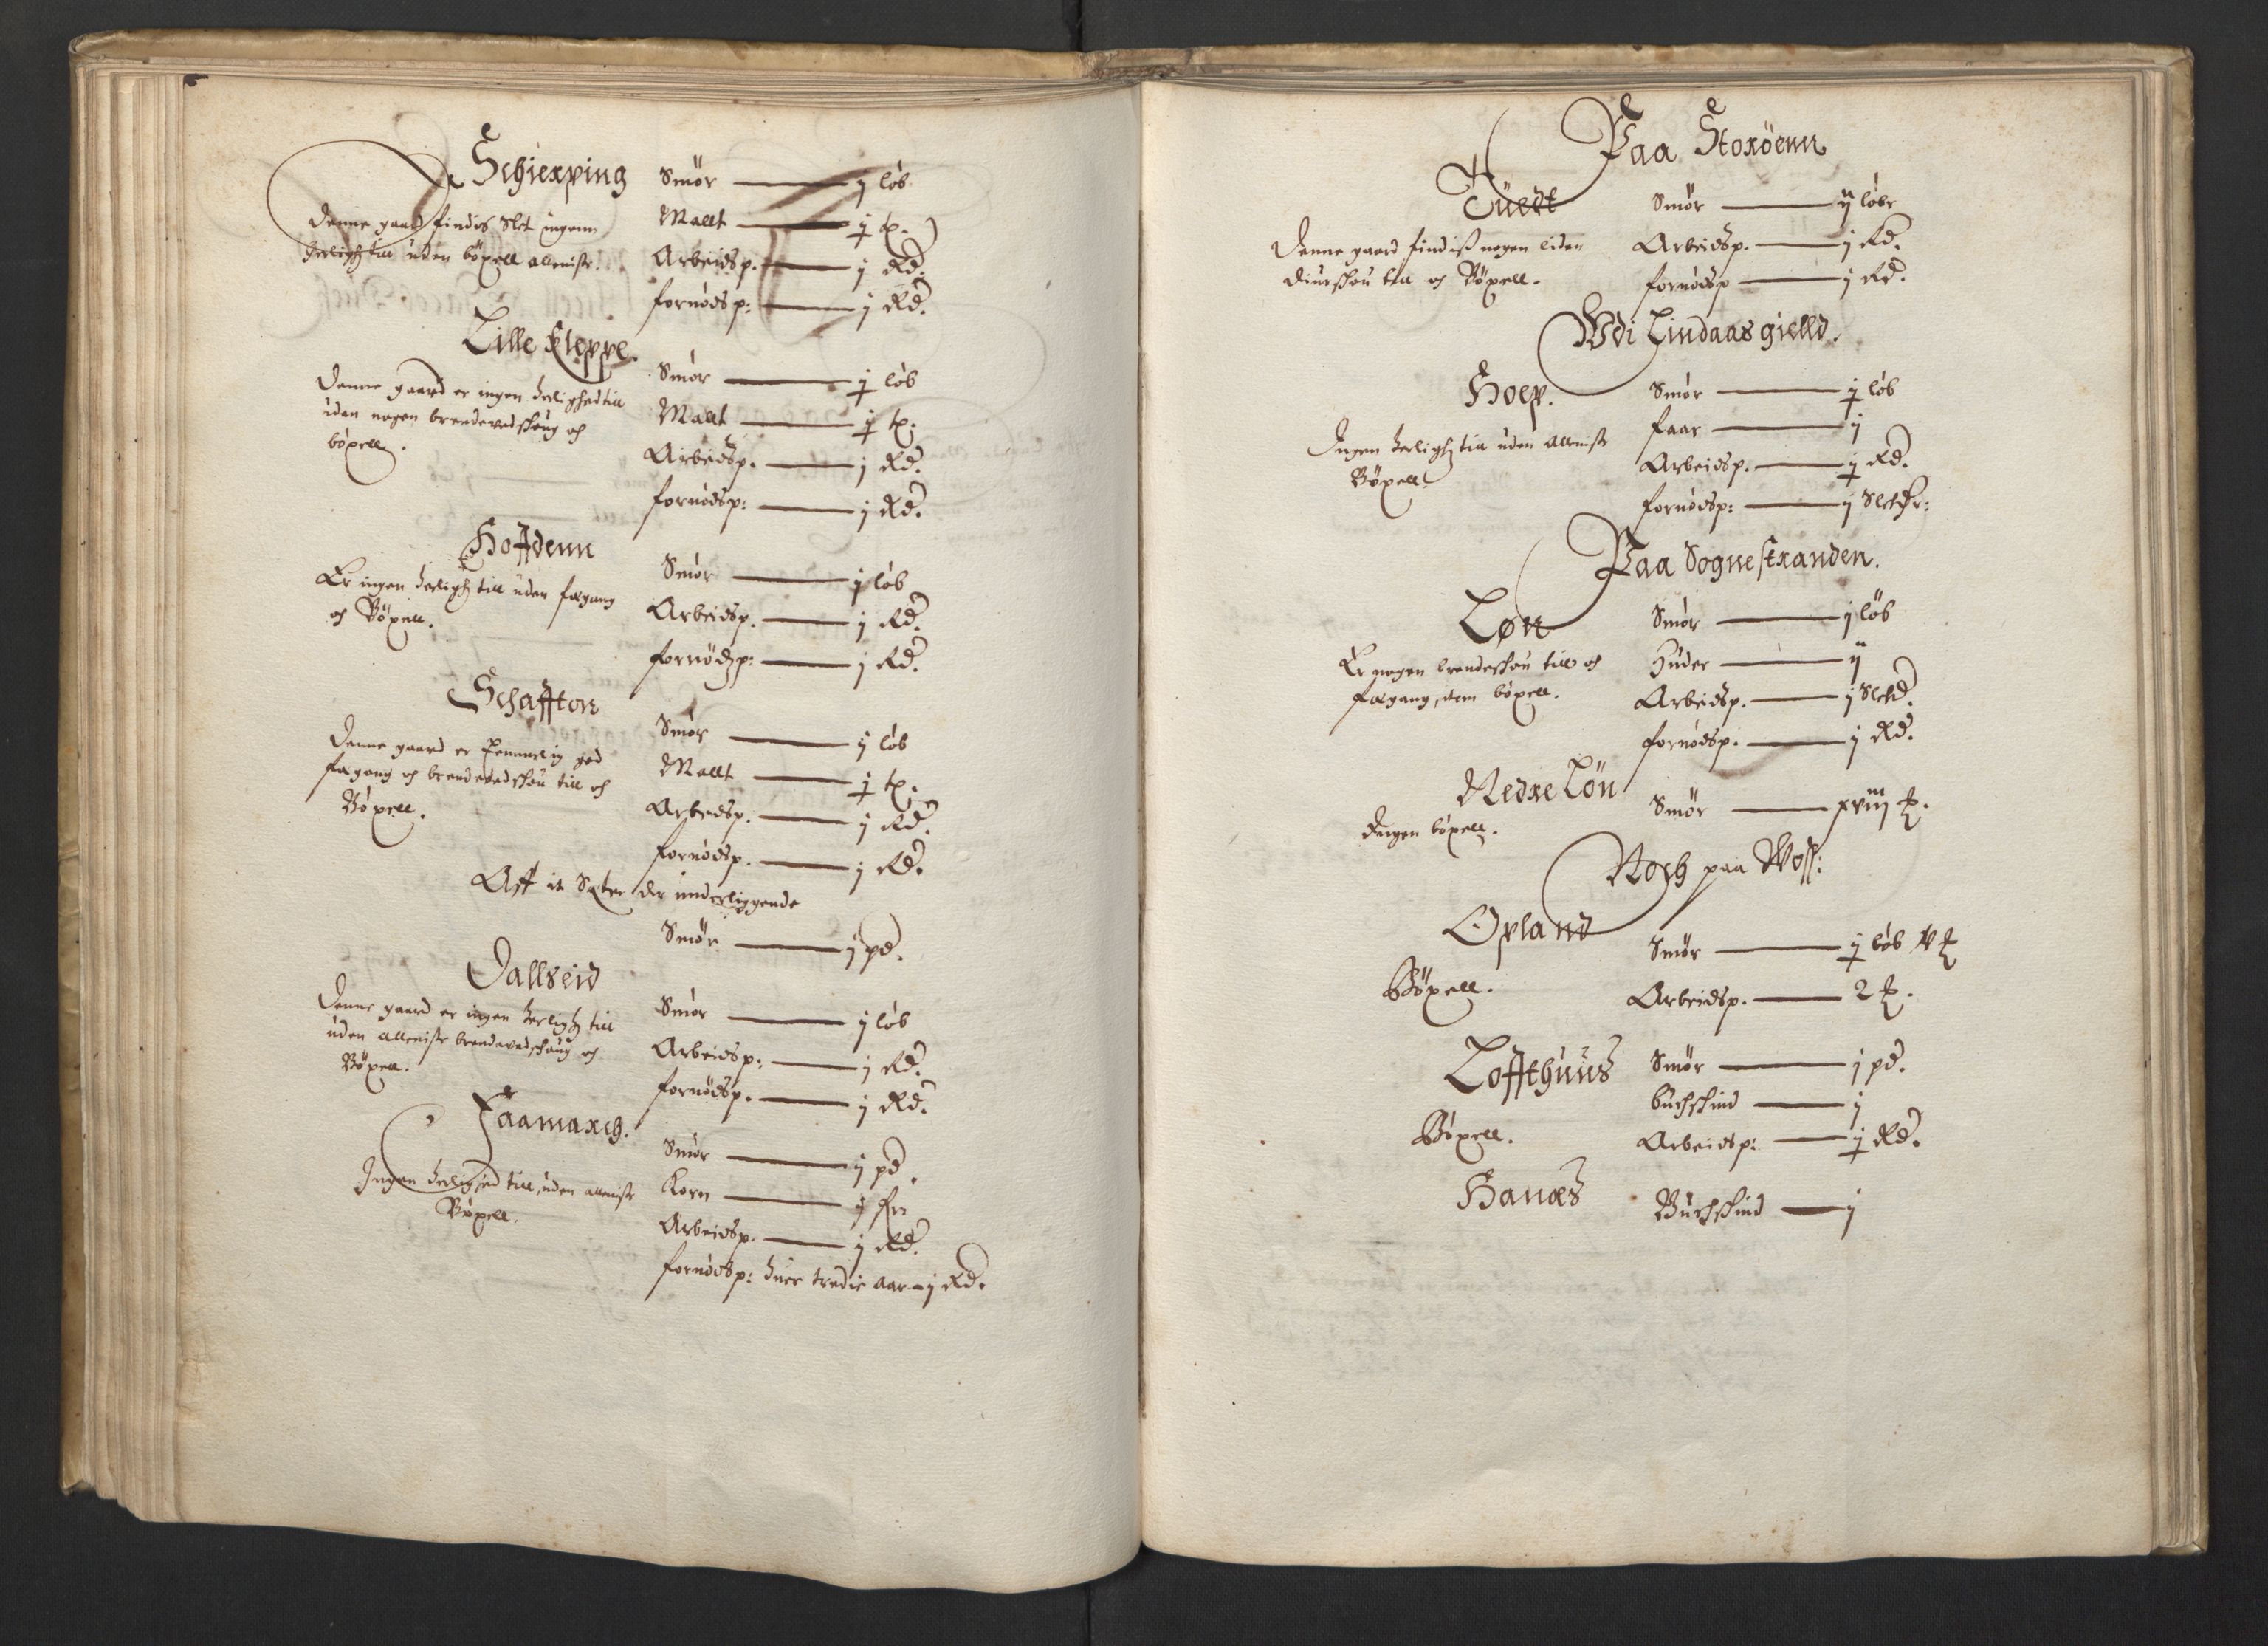 Schierping
Denne gaard findis Slet ingenn
herligh till uden böxell alleniste.
Smör — j löb
Mallt — j tp.
Arbeidsp. — j Rd.
fornödsp: — j Rd.
Lille Kleppe.
Denne gaard er ingen herlighed till
uden nogen brendeved skoug och
böxell.
Smör — j löb
Mallt — j tp.
Arbeidsp. — j Rd.
fornödsp: — j Rd.
Hoffdenn
Er ingen herligh till uden fægang
och Böxell.
Smör — j löb
Arbeidsp. — j Rd.
fornödsp: — j Rd.
Schaffton
Denne gaard er temmelig god
fægang och brendeved skou till och
Böxell.
Smör — j löb
Mallt — j tp.
Arbeidsp. — j Rd.
fornödsp. — j Rd.
Aff it Sæter der underliggende
Smör — j pd.
Dallseid
Denne gaard er ingen herligh till
uden alleniste brendeved schoug och
Böxell.
Smör — j löb
Arbeidsp: — j Rd.
fornödsp. — j Rd.
Faamarch.
Ingen herlighed till, uden alleniste
Böxell.
Smör — j pd.
Korn — j
Arbeidsp. — j Rd.
fornödsp: huer tredie aar — j Rd.
Paa Storöenn
Tuedt
Denne gaard findiss nogen liden
skou till och Böxell.
Smör — ij löbe
Arbeidsp. — j Rd.
fornödsp — j Rd.
Wdi Lindaas gielld.
Hoep.
Ingen herligh till uden alleniste
Böxell.
Smör — j löb
faar — j
Arbeidsp. — j Rd.
fornödsp: — j Sletdr:
Paa Sognestranden.
Løn
Er nogen brendeskou till och
fægang, dem böxell.
Smör — j löb
Huder — ij
Arbeidsp. — j Sletd.
fornödsp. — j Rd.
Nedre Lön
Ingen böxell.
Smör — xviij
Noch paa Woss:
Opland
Böxell.
Smör — j löb
Arbeidsp. — 2
Loffthuus
Böxell.
Smör — j pd.
buchskind — j
Arbeidsp: — j Rd.
Hanæs
Buchskind — j